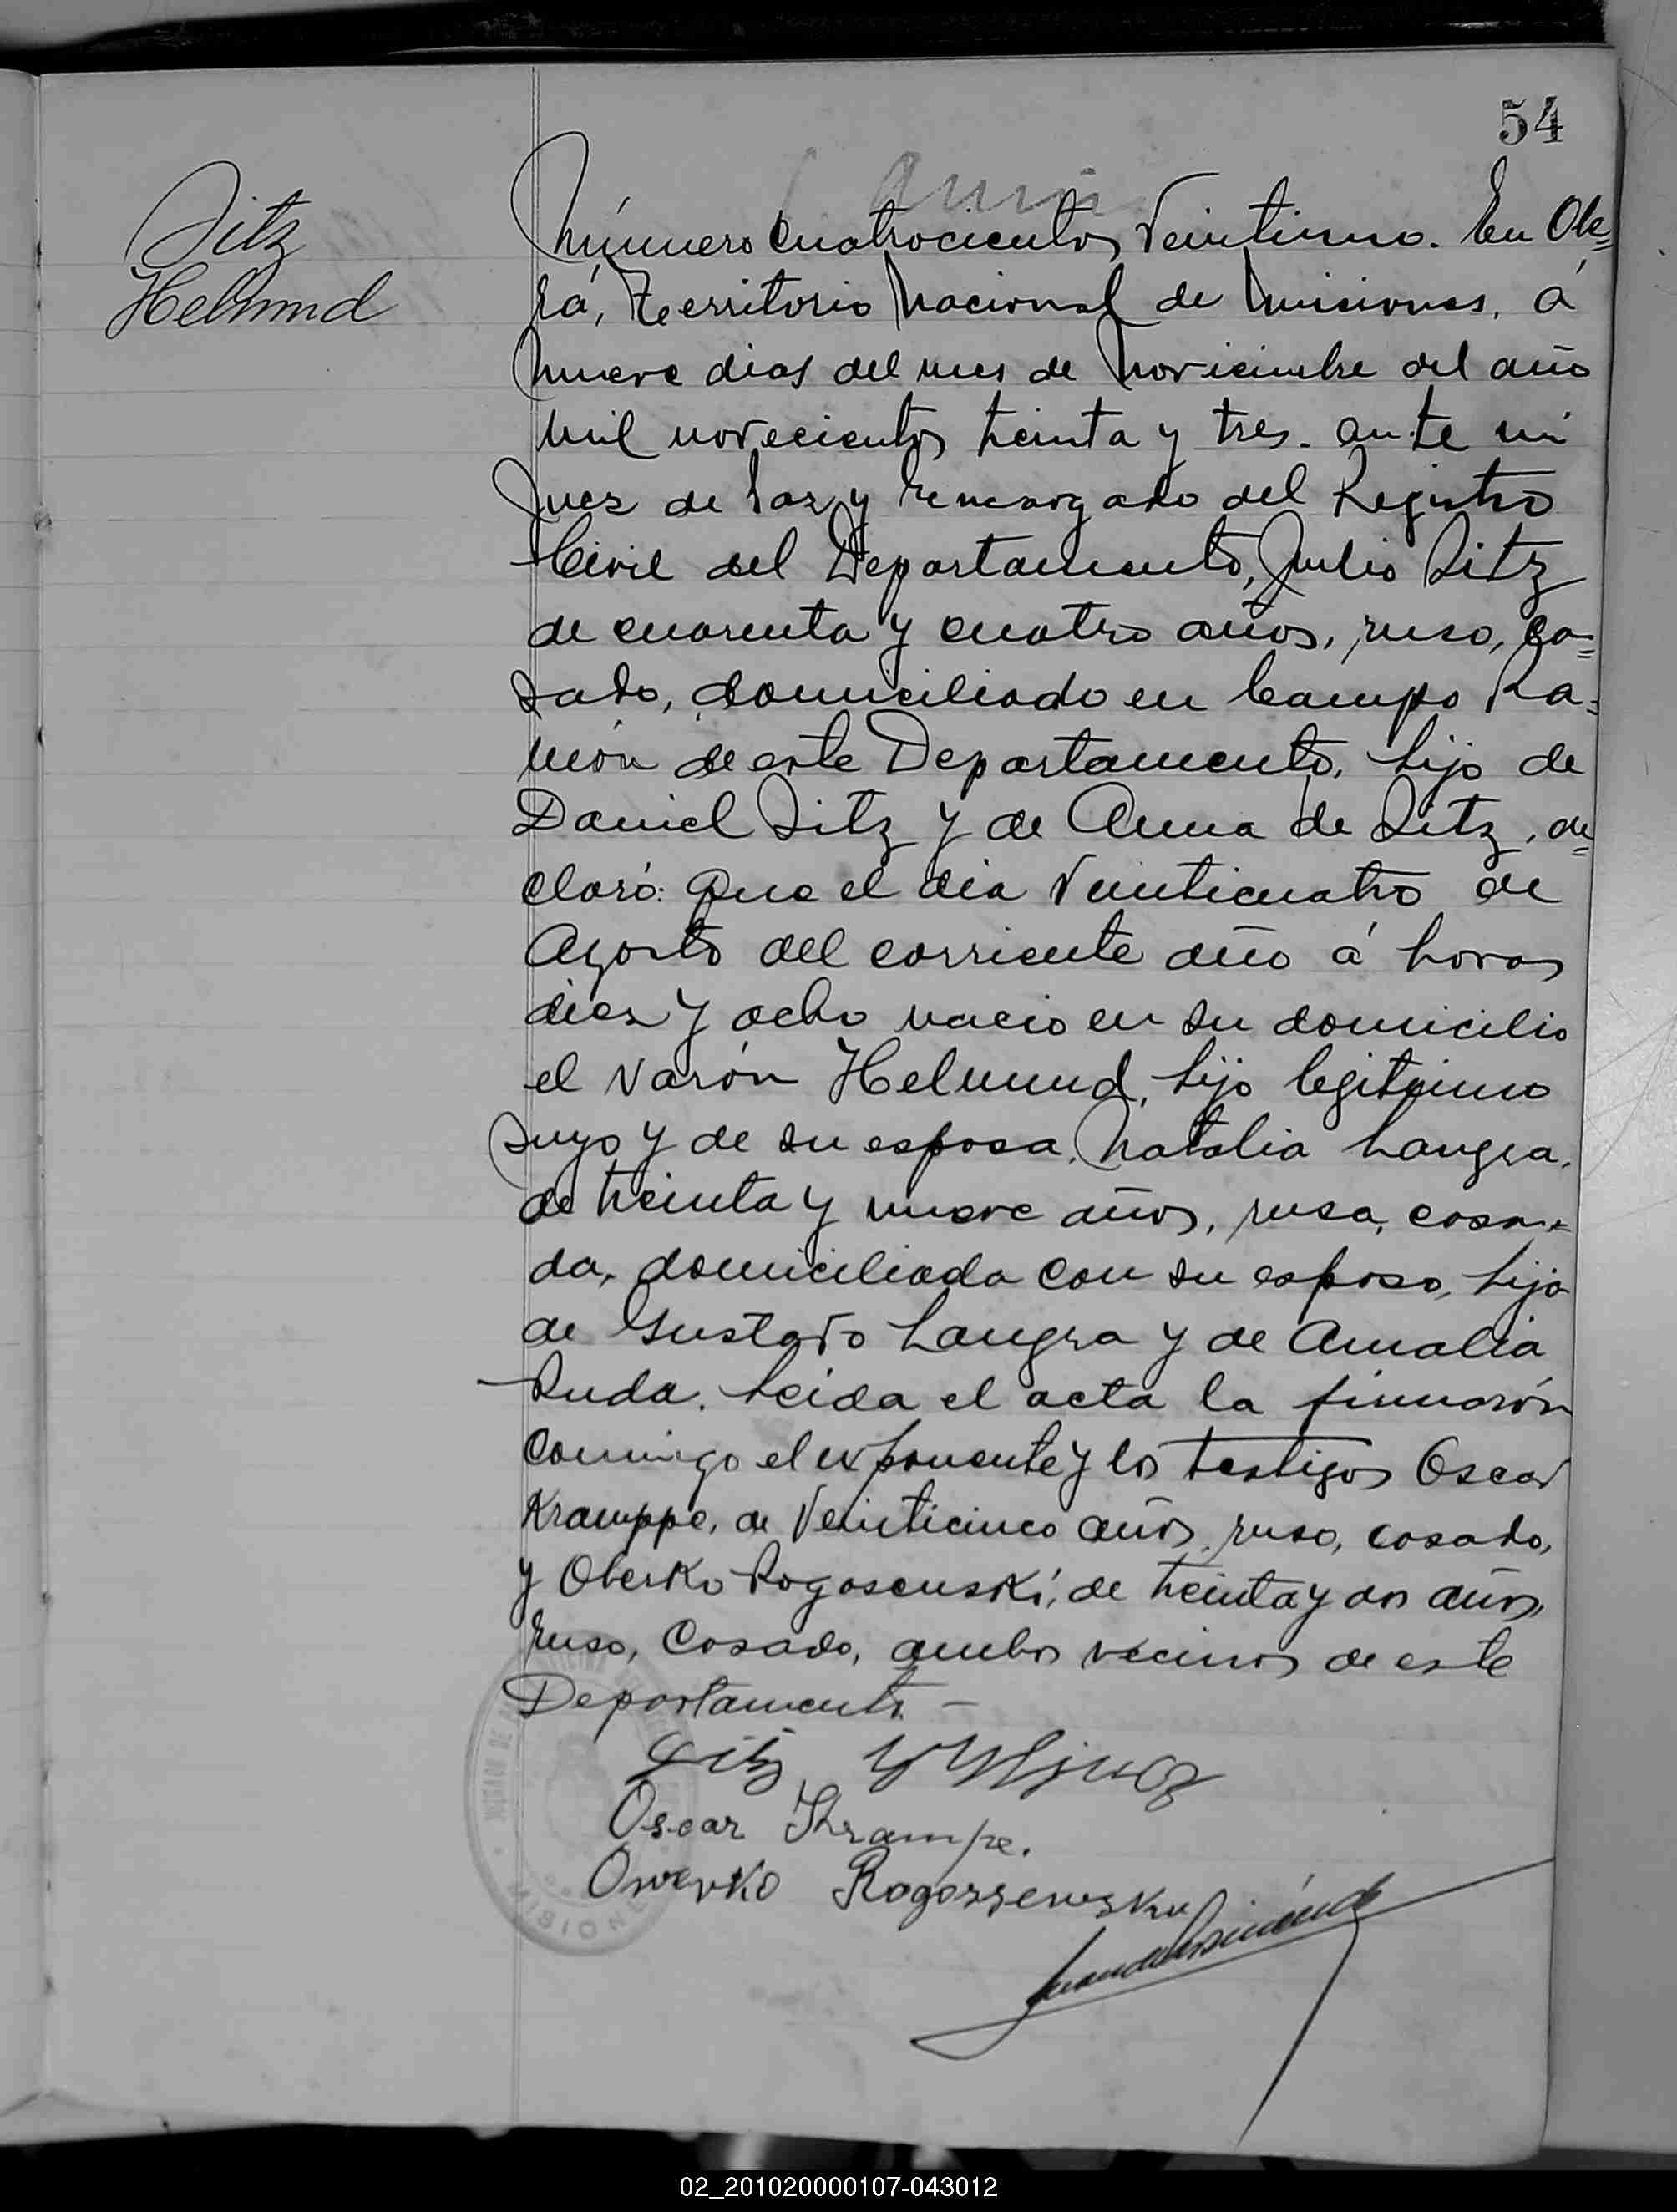 54
Sitz
Helmund
Número Cuatrocientos Veintiuno. En Obe=
rá, Territorio Nacional de Misiones, á
nueve dias del mes de Noviembre del año
mil novecientos treinta y tres. ante mi
Juez de Paz y Encargado del Registro
Civil del Departamento, Julio Sitz
de cuarenta y cuatro años, ruso, ca=
sado, domiciliado en Campo Ra=
món de este Departamento, hijo de
Daniel Sitz y de Anna de Sitz, de=
claró: Que el dia Veinticuatro de
Agosto del corriente año á horas
diez y ocho nacio en su domicilio
el varón Helmund, hijo legitimo
suyo y de su esposa, Natalia Langra,
de treinta y nueve años, rusa, casa=
da, domiciliada con su esposo, hija
de Gustavo Langra y de Amalia
Ruda. Leida el acta la firmarón
comigo el exponente y los testigos Oscar
Kramppe, de Veinticinco años, ruso, casado,
y Oberko Rogosenski, de treinta y dos años,
ruso, Casado, ambos vecinos de este
Departamento. —
Sitz
Oscar Krampe.
Owerko Rogoszewsky
MISIONES
02_201020000107-043012